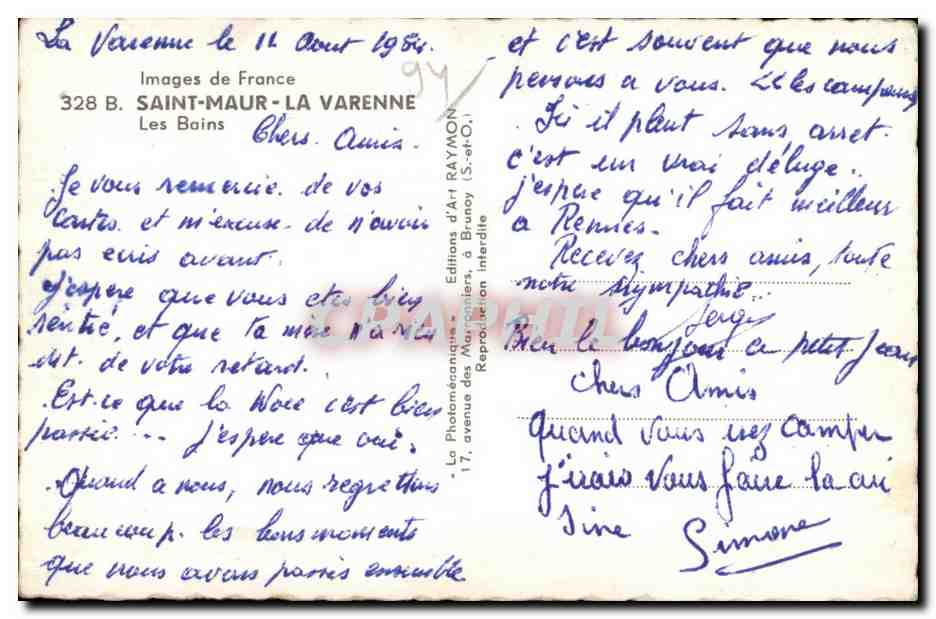 La Varenne le 11 Aout 1954.
Images de France
328 B. SAINT-MAUR - LA VARENNE
Les Bains
94
Chers. Amis.
Je vous remercie. de vos
cartes et m'excuse. de n'avoir
pas ecris avant.
J'espere que vous etes bien
rentré, et que ta mere n'a rien
dit. de votre retard.
Est-ce que la Noce c'est bien
passée... J'espere que oui.
Quand a nous, nous regrettons
beaucoup. les bons moments
que nous avons passés ensemble
"La Photomécanique" Editions d'Art RAYMON
17, avenue des Marronniers, à Brunoy (S.-et-O.)
Reproduction interdite
CPAPHIL
et c'est souvent que nous
pensons a vous. les campeurs
Ici il pleut sans arret.
c'est un vrai déluge..
j'espere qu'il fait meilleur
a Rennes.
Recevez chers amis, toute
notre sympathie..
Serge
Bien le bonjour a petit Jean
chers Amis
quand vous irez camper
j'irais vous faire la cui
sine
Simone